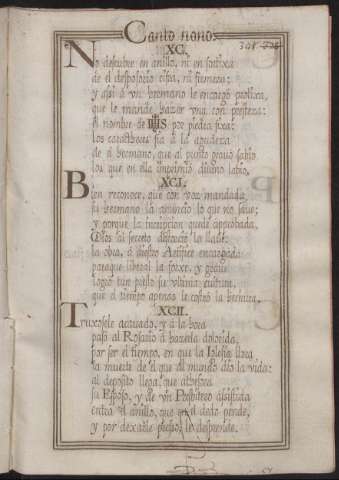 Canto nono
XC.
No descubre en anillo, ni en sortixa
de el desposorio cifra, ni firmeza:
y assi a vn hermano le encargo prolixa,
que le mande hazer vna con presteza:
El nombre de IHS por piedra fixa:
los caracteres fia a la agudeza
de el hermano, que al punto
los que en ella imprimio diuino labio.
XCI.
Bien reconoce, que con voz mandada
su hermano la anuncio lo que no saue;
y porque la inscripcion quede aprobada,
Dios al secreto la llaue:
la obra, a diestro Artifice encargada
paraque liberal la forxe, y
logro tan presto su vltima cultura,
que el tiempo apenas le costò la hechura.
XCII.
Truxosele acauado, y a la hora
paso el Rosario a hazerla dolorida,
por ser el tiempo, en que la Iglesia llora
la muerte de el que al mundo dio la vida:
al deposito llega, que athesora
su Esposo, y de vn Presbitero assistida
entra el anillo, que en el dedo prende,
y por dexarle presto le desprende.